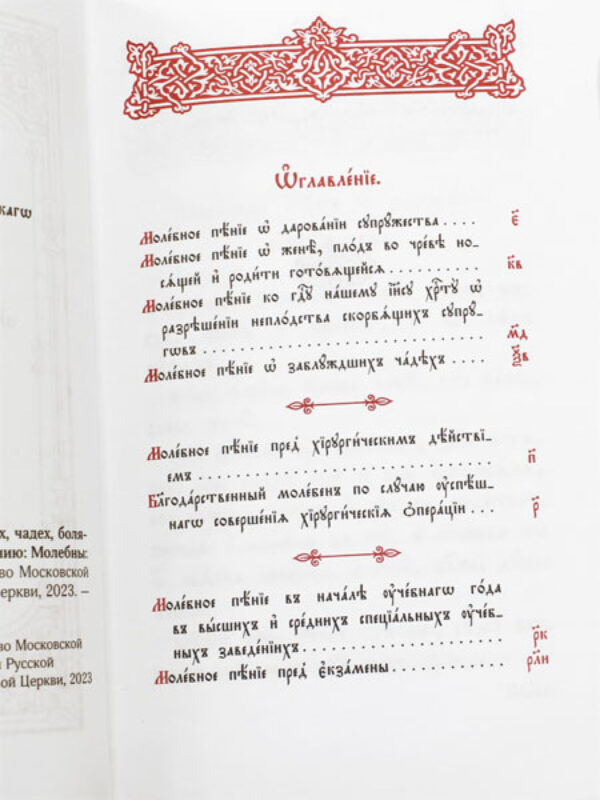 кагѡ
х, чадех, боля-
нию: Молебны:
во Московской
еркви, 2023. –
во Московской
и Русской
ой Церкви, 2023
Ѡ҆главле́нїе.
Моле́бное пѣ́нїе ѡ҆ дарова́нїи сꙋпрꙋ́жества .... є҃
Моле́бное пѣ́нїе ѡ҆ женѣ̀, пло́дъ во чре́вѣ но-
сѧ́щей и҆ роди́ти гото́вѧщейсѧ .......... к҃в
Моле́бное пѣ́нїе ко гдⷭ҇ꙋ на́шемꙋ і҆и҃сꙋ хрⷭ҇тꙋ̀ ѡ҆
разрѣше́нїи непло́дства скорбѧ́щихъ сꙋпрꙋ́-
гѡвъ .......... м҃д
Моле́бное пѣ́нїе ѡ҆ заблꙋ́ждшихъ ча́дѣхъ .... ѯ҃в
Моле́бное пѣ́нїе пред̾ хїрꙋрги́ческимъ дѣ́йствї-
емъ .......... п҃
Благода́рственный моле́бенъ по слꙋ́чаю ᲂу҆спѣ́ш-
нагѡ соверше́нїѧ хїрꙋрги́ческїѧ ѻ҆пера́цїи ... р҃
Моле́бное пѣ́нїе въ нача́лѣ ᲂу҆че́бнагѡ го́да
въ вы́сшихъ и҆ сре́днихъ спецїа́льныхъ ᲂу҆че́б-
ныхъ заведе́нїихъ .......... р҃к
Моле́бное пѣ́нїе пред̾ є҆кза́мены .......... рл҃и